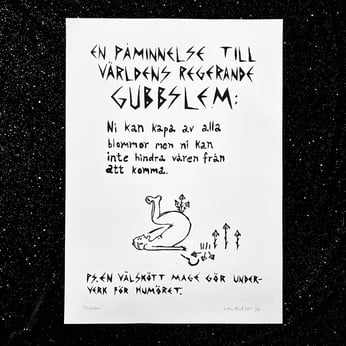 EN PÅMINNELSE TILL
VÄRLDENS REGERANDE
GUBBSLEM:
Ni kan kapa av alla
blommor men ni kan
inte hindra våren från
att komma.
PS. EN VÄLSKÖTT MAGE GÖR UNDER-
VERK FÖR HUMÖRET.